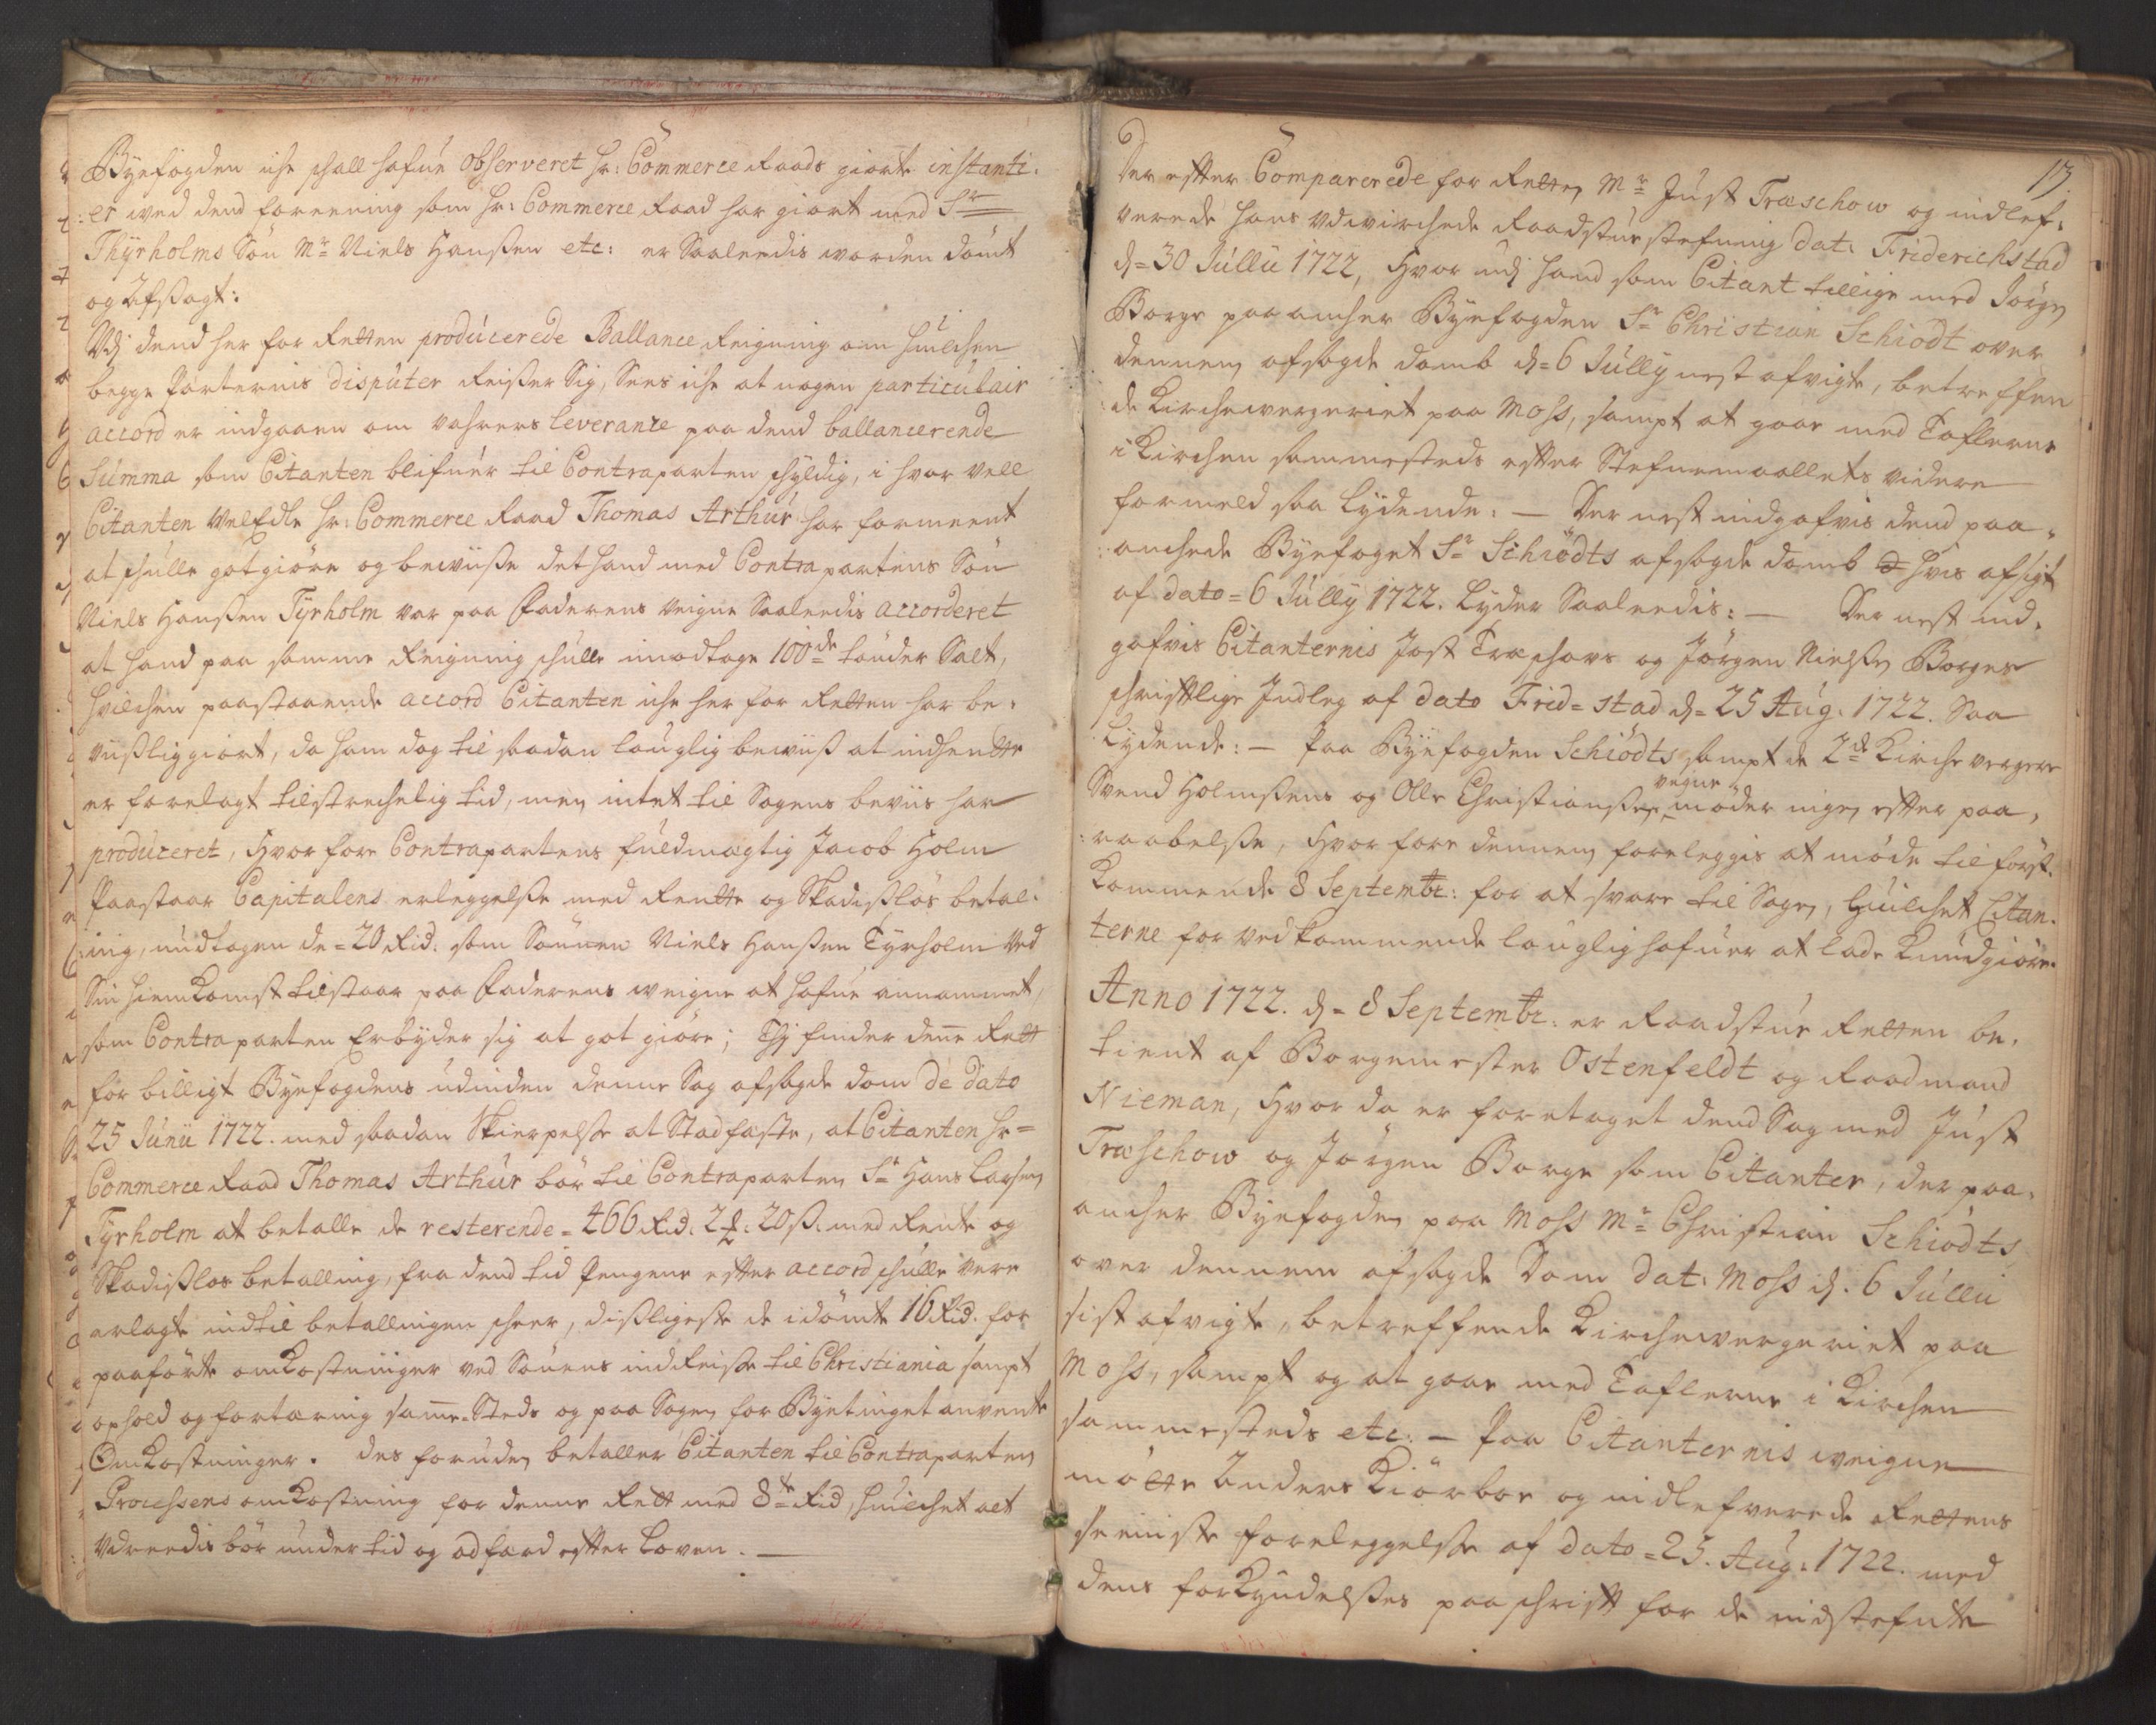 Byefogden iche schall hafue observeret Hr: Commerce Raads giorte instanti-
:er wed dend foreening som Hr: Commerce Raad har giort med Sr
Thyrholms Sön Mr Niels Hanßen etc: er Saaleedis worden dömt
og Afsagt:
Udj dend her for Retten producerede Ballance Reigning om huilchen
begge Parternis disputer Reißer Sig, Sees iche at nogen particulair
accord er indgaaen om vahrers leverance paa dend ballancerende
Summa som Citanten blifuer til Contraparten schyldig, i hvor vell
Citanten WelEdle Hr: Commerce Raad Thomas Arthur har formeent
at schulle godtgiöre og bewiiße det hand med Contrapartens Sön
Niels Hanßen Tyrholm var paa Faderens veigne Saaleedis accorderet
at hand paa samme Reigning schulle imodtage 100de tönder Salt,
Hvilchen paastaaende accord Citanten iche her for Retten har be-
viißliggiort, da ham dog til saadan louglig beviiß at indhendtte
er forelagt tilstrechelig tid, men intet til Sagens beviis har
produceret, Hvorfore Contrapartens fuldmagtig Jacob Holm
Paastaar Capitalens erleggelße med Rentte og Skadisslös betal-
ing, undtagen de = 20 Rid. som Sönnen Niels Hanßen Tyrholm ved
Sin hiemkomst tilstaar paa Faderens weigne at hafue annammet,
som Contraparten Erbyder sig at got giöre; Thj finder denne Rett
for billigt Byefogdens udinden denne Sag afsagde dom de dato
25 Junii 1722. med saadan Skierpelße at Stadfæste, at Citanten Hr=
Commerce Raad Thomas Arthur bör til Contraparten Sr Hans Larsen
Tyrholm at betalle de resterende = 466 Rid. 2 ₰. 20 ß. med Rente og
Skadisslos betalling, fra dend tid Pengene efter accord schulle vere
erlagt indtil betallingen scheer, dißligeste de idömte 16 Rid. for
paaförte omkostninger ved Sönens indReiße til Christiania sampt
ophold og fortæring samme Steds og paa Sagen for Byetinget anvendte
Omkostninger. des foruden betaller Citanten til Contraparten
Processens omkostning for denne Rett med 8te Rid, huilchet alt
Udreedis bör under tid og adfærd efter Loven. —
13.
Der efter Comparerede for Retten Mr Just Træschow og indlef-
verede hans udvirchede Raadstue stefning dat: Friderichstad
d= 30 Jullii 1722, Hvor udj hand som Citant tillige med Jörgen
Borge paaancher Byefogden Sr Christian Schiödt over
dennem afsagde domb d= 6 Jully nest afvigte, betreffen
:de Kirchewergeriet paa Moss, sampt at gaae med Taflerne
i Kirchen sammesteds efter Stefnemaallets videre
formeld saa Lydende: — Der nest indgafvis dend paa-
:anchede Byefoget Sr Schiödts afsagde domb hvis afsigt
af dato = 6 Jully 1722. Lyder Saaleedis: — Der nest ind-
gafvis Citanternis Jost Træschows og Jörgen Nielßen Borges
schrifftlige Indleg af dato Frid=stad d= 25 Aug: 1722. Saa
Lydende: — Paa Byefogden Schiödts sampt de 2de Kirche vergere
Svend Holmßens og Olle Christianßens veigne möder ingen efter paa-
:raabelße, Hvorfore dennem foreleggis at möde til först-
kommende 8 Septembr: for at svare til Sagen, huilchet Citan-
terne for ved kommende louglig hafuer at lade kundgiöre.
Anno 1722. d= 8 Septembr: er Raadstue Retten be-
tient af Borgemester Ostenfeldt og Raadmand
Nieman, Hvor da er foretaget dend Sag med Just
Træschow og Jörgen Borge som Citanter, der paa-
ancher Byefogden paa Moss Mr Christian Schiödts
over dennem afsagde Dom dat: Moss d. 6 Jullii
sist afvigte, betreffende Kirchewergeriet paa
Moss, sampt og at gaae med Taflerne i Kirchen
sammesteds etc: — Paa Citanternis weigne
mötte Anders Kiörboe og indlefverede Rettens
seeniste foreleggelße af dato = 25. Aug: 1722. med
dens forkyndelßes paaschrifft for de indstefnte